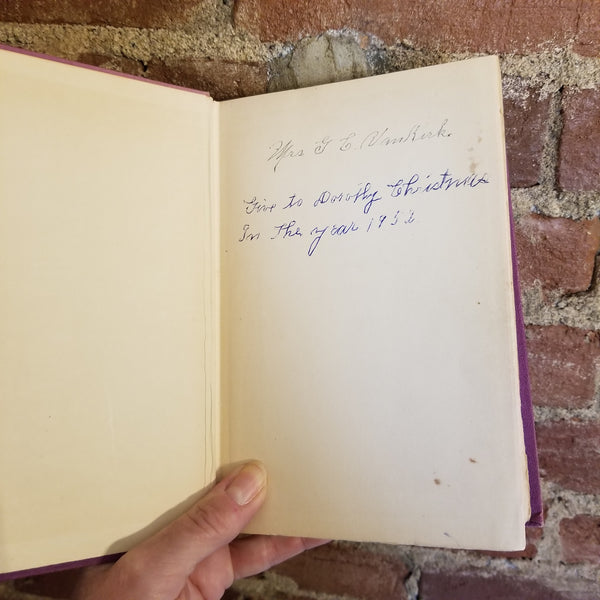 Mrs G E VanKirk.
Give to Dorothy Christmas
In The year 1953